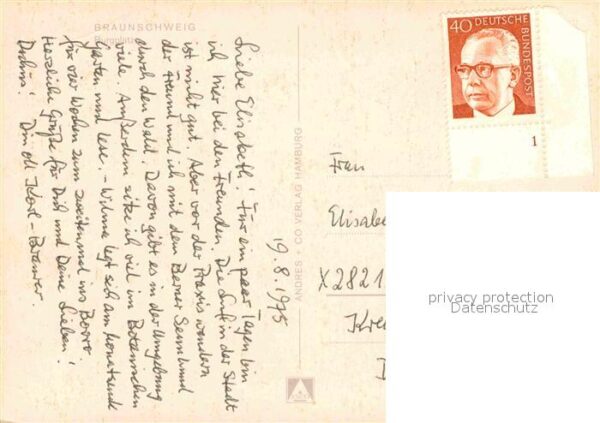 BRAUNSCHWEIG
Burgplatz
19.8.1975
Liebe Elisabeth! Für ein paar Tagen bin
ich hier bei den Freunden. Die Luft in der Stadt
ist nicht gut. Aber vor der Praxis wandern
der Freund und ich mit dem Berner Sennhund
durch den Wald. Davon gibt es in der Umgebung
viele. Außerdem sitze ich viel im Botanischen
Garten und lese. - Wilma legt sich am Monatsende
für vier Wochen zum zweitenmal ins Boro.
Herzliche Grüße für Dich und Deine Lieben!
Karl-
ANDRES + CO VERLAG HAMBURG
40 DEUTSCHE
BUNDESPOST
1
Frau
Elisabe
X2821
Kre
privacy protection
Datenschutz